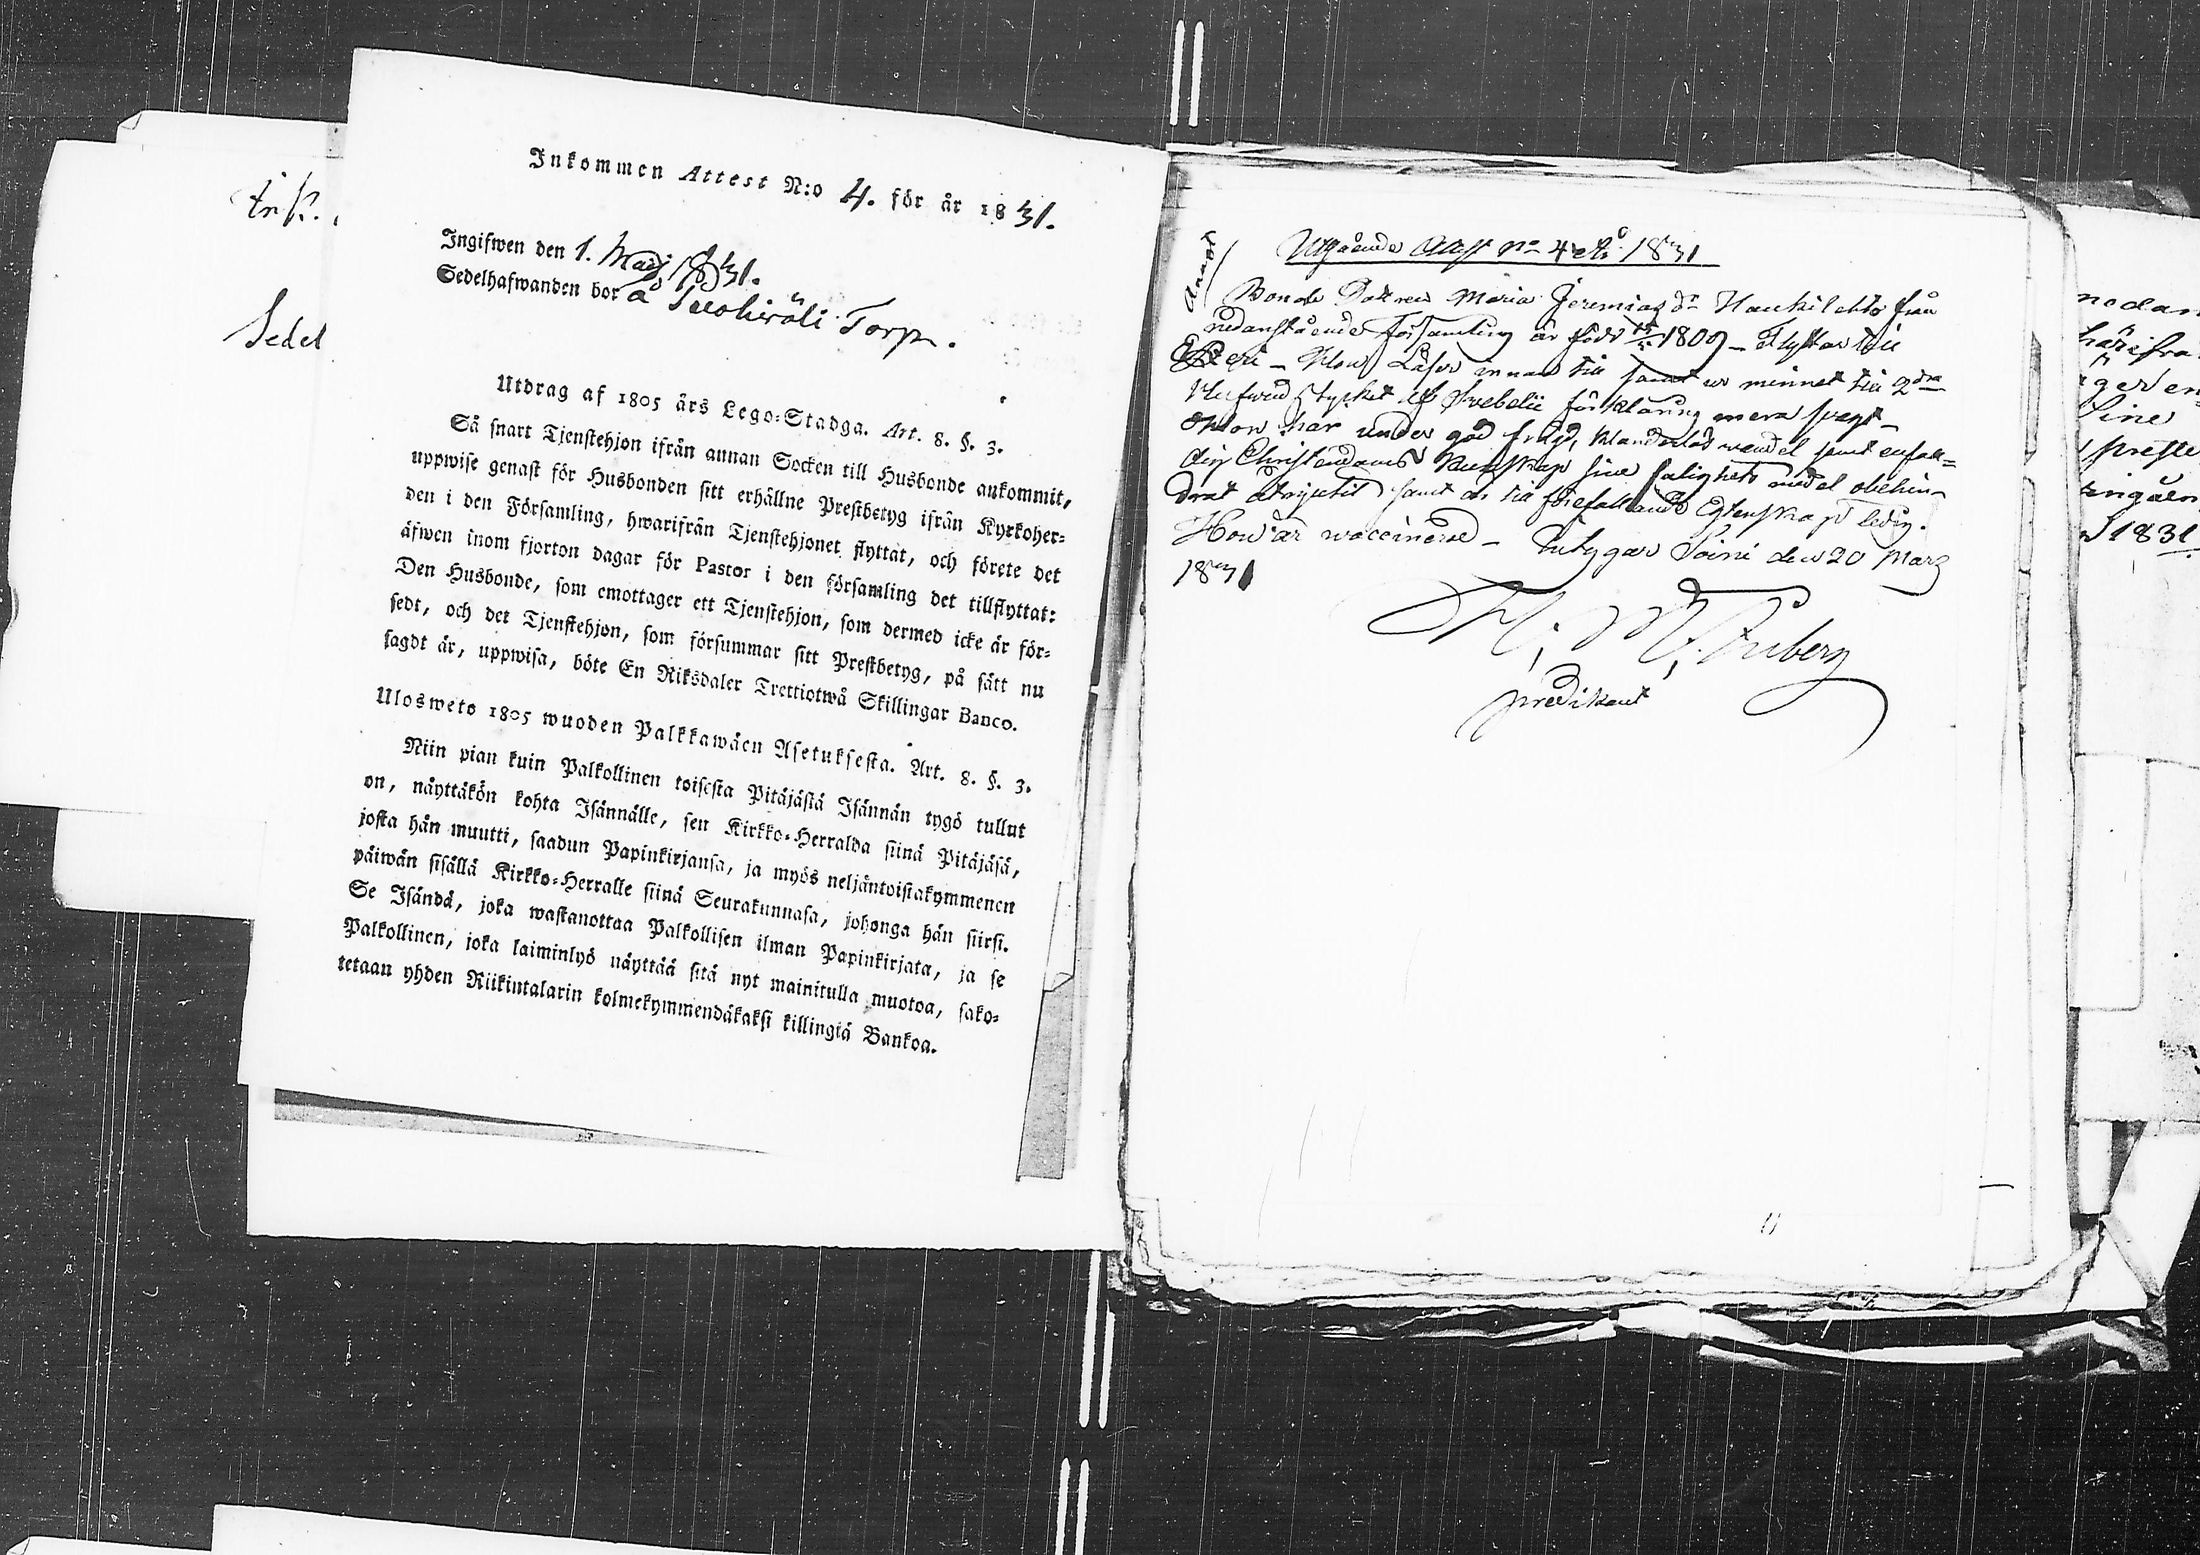 Ink.
Sedel
Inkommen Attest N:o 4. för år 1831.
Ingifwen den 1. Maij 1831.
Sedelhafwanden bor å Torp.
Utdrag af 1805 års Lego-Stadga. Art. 8. §. 3.
Så snart Tjenstehjon ifrån annan Socken till Husbonde ankommit,
uppwise genast för Husbonden sitt erhållne Prestbetyg ifrån Kyrkoher-
den i den Församling, hwarifrån Tjenstehjonet flyttat, och förete det
äfwen inom fjorton dagar för Pastor i den församling det tillflyttat:
Den Husbonde, som emottager ett Tjenstehjon, som dermed icke är för-
sedt, och det Tjenstehjon, som försummar sitt Prestbetyg, på sätt nu
sagdt är, uppwisa, böte En Riksdaler Trettiotwå Skillingar Banco.
Ulosweto 1805 wuoden Palkkawäen Asetuksesta. Art. 8. §. 3.
Niin pian kuin Palkollinen toisesta Pitäjästä Isännän tygö tullut
on, näyttäkön kohta Isännälle, sen Kirkko-Herralda siinä Pitäjäsä,
josta hän muutti, saadun Papinkirjansa, ja myös neljäntoistakymmenen
päiwän sisällä Kirkko-Herralle siinä Seurakunnasa, johonga hän siirsi.
Se Isändä, joka wastanottaa Palkollisen ilman Papinkirjata, ja se
Palkollinen, joka laiminlyö näyttää sitä nyt mainitulla muotoa, sako-
tetaan yhden Riikintalarin kolmekymmendäkaksi killingiä Bankoa.
Utgående Attest No 4 1831
Bonde Dottren Maria Jeremias dr Haukilehto från
nedanstående Församling är född 1809 – Flyttar till
– Hon Läser innan till samt ur minnet till 2dra
Hufwud stycket af Svebelii förklaring mera svagt –
Hon har under god frägd, klanderlös wandel samt enfal-
dig Christendoms Kunskap sine salighets medel obehin-
drat åtnjutit samt är till förefallande Egtenskap ledig.
Hon är waccinerad – Intygar Soini den 20 Mars
1831
H. M.
predikant
nedan
härifrå
äger en
Sine
preste
ingåen
1831